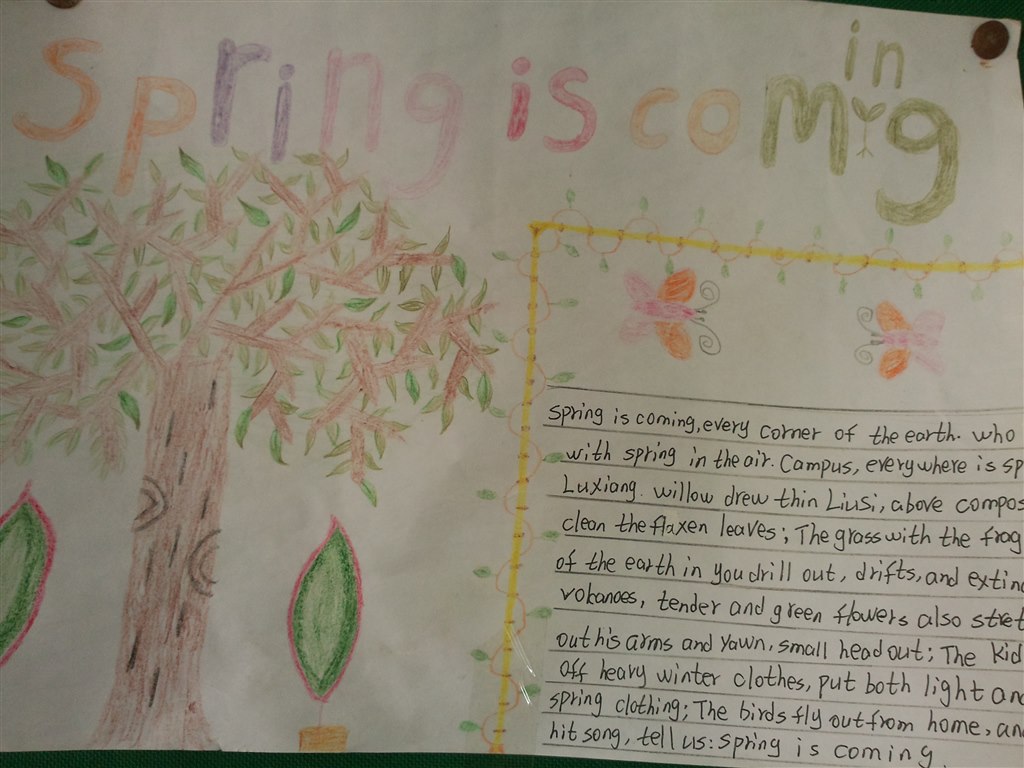 Spring is coming
in
Spring is coming, every corner of the earth. who
with spring in the air. Campus, everywhere is sp
Luxiang. willow drew thin Liusi, above compos
clean the flaxen leaves; The grass with the frag
of the earth in you drill out, drifts, and extin
volcanoes, tender and green flowers also stret
out his arms and yawn, small head out; The kid
off heavy winter clothes, put both light an
spring clothing; The birds fly out from home, an
hit song, tell us: spring is coming.